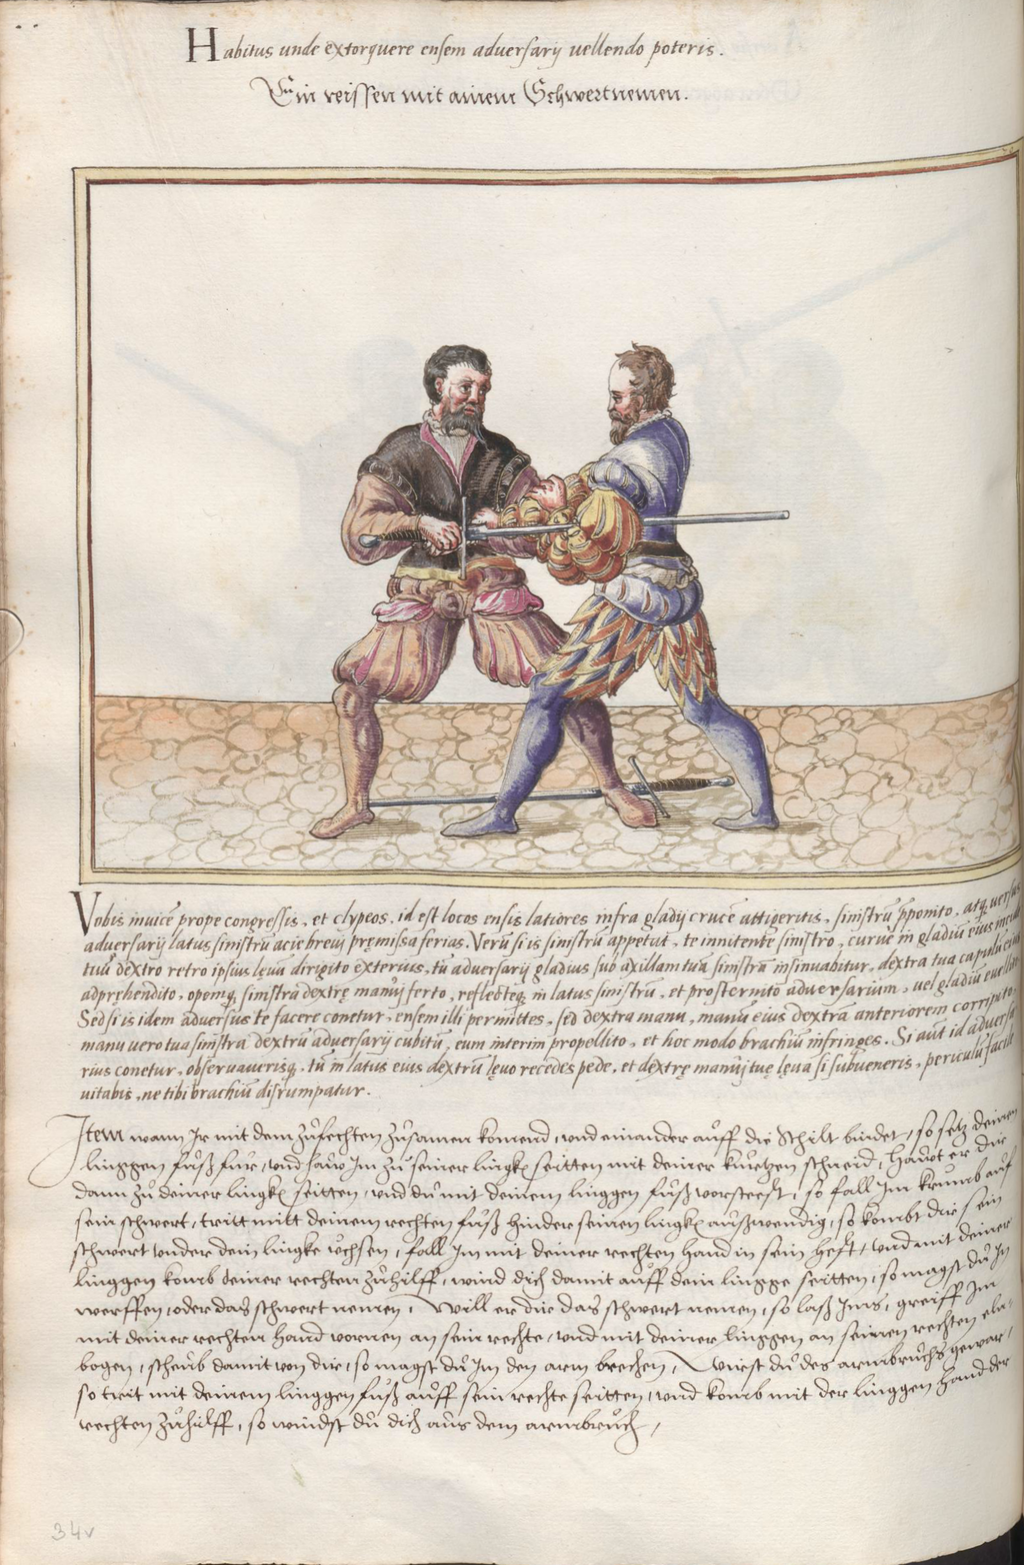 Habitus unde extorquere ensem adversarÿ vellendo poteris.
Ein reissen mit ainem Schwertnemen.
Vobis invicē prope congressis, et clypeos, id est locos ensis latiores infra gladÿ crucē attigeritis, sinistrū p̄ponito, atq, versus
adversarÿ latus sinistrū acie brevi pręmissa ferias. Verū si is sinistrū appetivt, te innitente sinistro, curve in gladiū eius
tuū dextro retro ipsius lęvū dirigito exterius, tū adversarÿ gladius sub axillam tuā sinistrā insinuabitur, dextra tua capulū
adpręhendito, opemq, sinistrā dextrę manuj ferto, reflecteq, in latus sinistrū, et prosternito adversarium, vel gladiū
Sed si is idem adversus te facere conetur, ensem illi permittes, sed dextra manu, manū eius dextrā anteriorem corripito,
manu vero tua sinistra dextrū adversarÿ cubitū, eum interim propellito, et hoc modo brachiū infringes. Si aūt id adversa
rius conetur, observaverisq, tū in latus eius dextrū lęvo recedes pede, et dextrę manuj tuę lęva si subveneris, periculū facile
vitabis, ne tibi brachiū disrumpatur.
Item wann Ir mit dem zůfechten zůsamen komend, und einander auff die Schilt bindet, so setz deinen
linggen fůß für, und haw Im zů seiner lingkn seitten mit deiner kurtzen schneid, hawt er dir
dann zů deiner lingkn seitten, und du mit deinem linggen fůß vorsteest, so fall Im krumb auf
sein schwert, tritt mitt deinem rechten fůß hinder seinen lingkn außwendig, so kombt dir sein
schwert under dein lingke uchsen, fall Im mit deiner rechten hand in sein hefft, und mit deiner
linggen komb deiner rechten zůhilff, wind dich damit auff dein lingge seitten, so magst du In
werffen, oder das schwert nemen, Will er dir das schwert nemen, so laß Ims, greiff Im
mit deiner rechten hand vornen an sein rechte, und mit deiner linggen an seinen rechten ela-
bogen, scheub damit von dir, so magst du Im den arm brechen, Wirst du des armbruchs gewar,
so trit mit deinem linggen fůß auff sein rechte seitten, und komb mit der linggen hand der
rechten zůhilff, so windst du dich aus dem armbruch,
34v